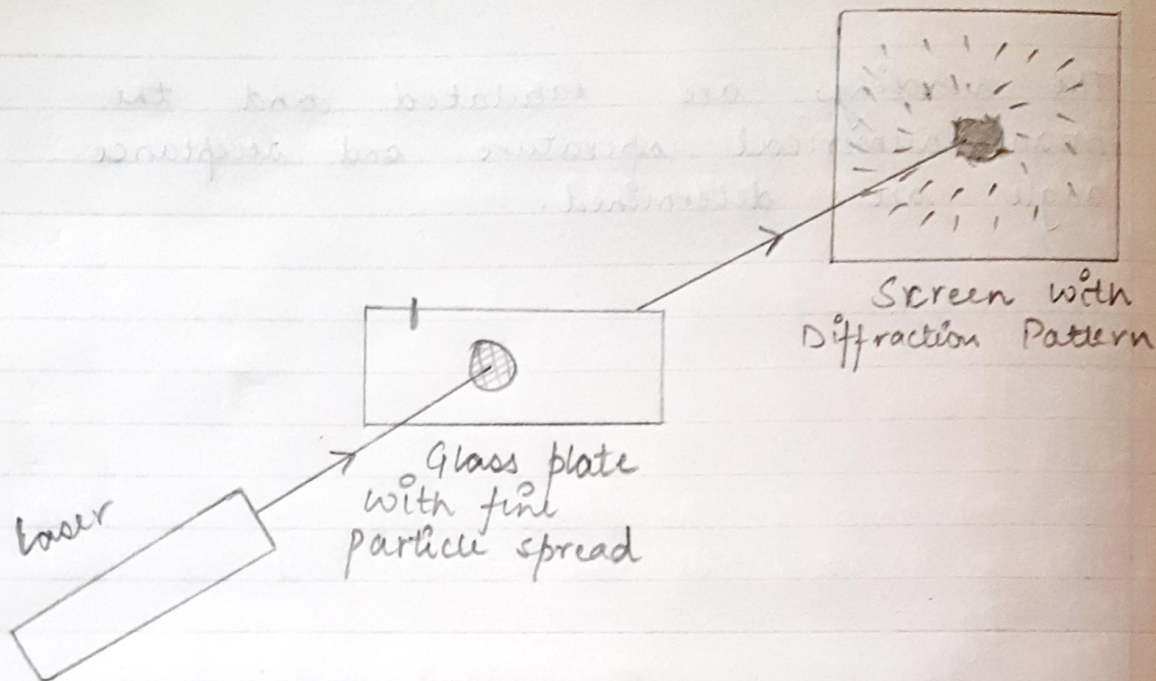 Screen with
Diffraction Pattern
Glass plate
with fine
particle spread
Laser